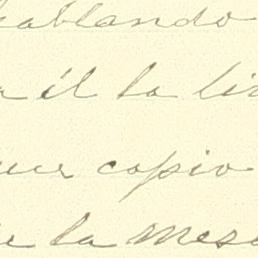 hablando
a él la li
que copio
de la mesa